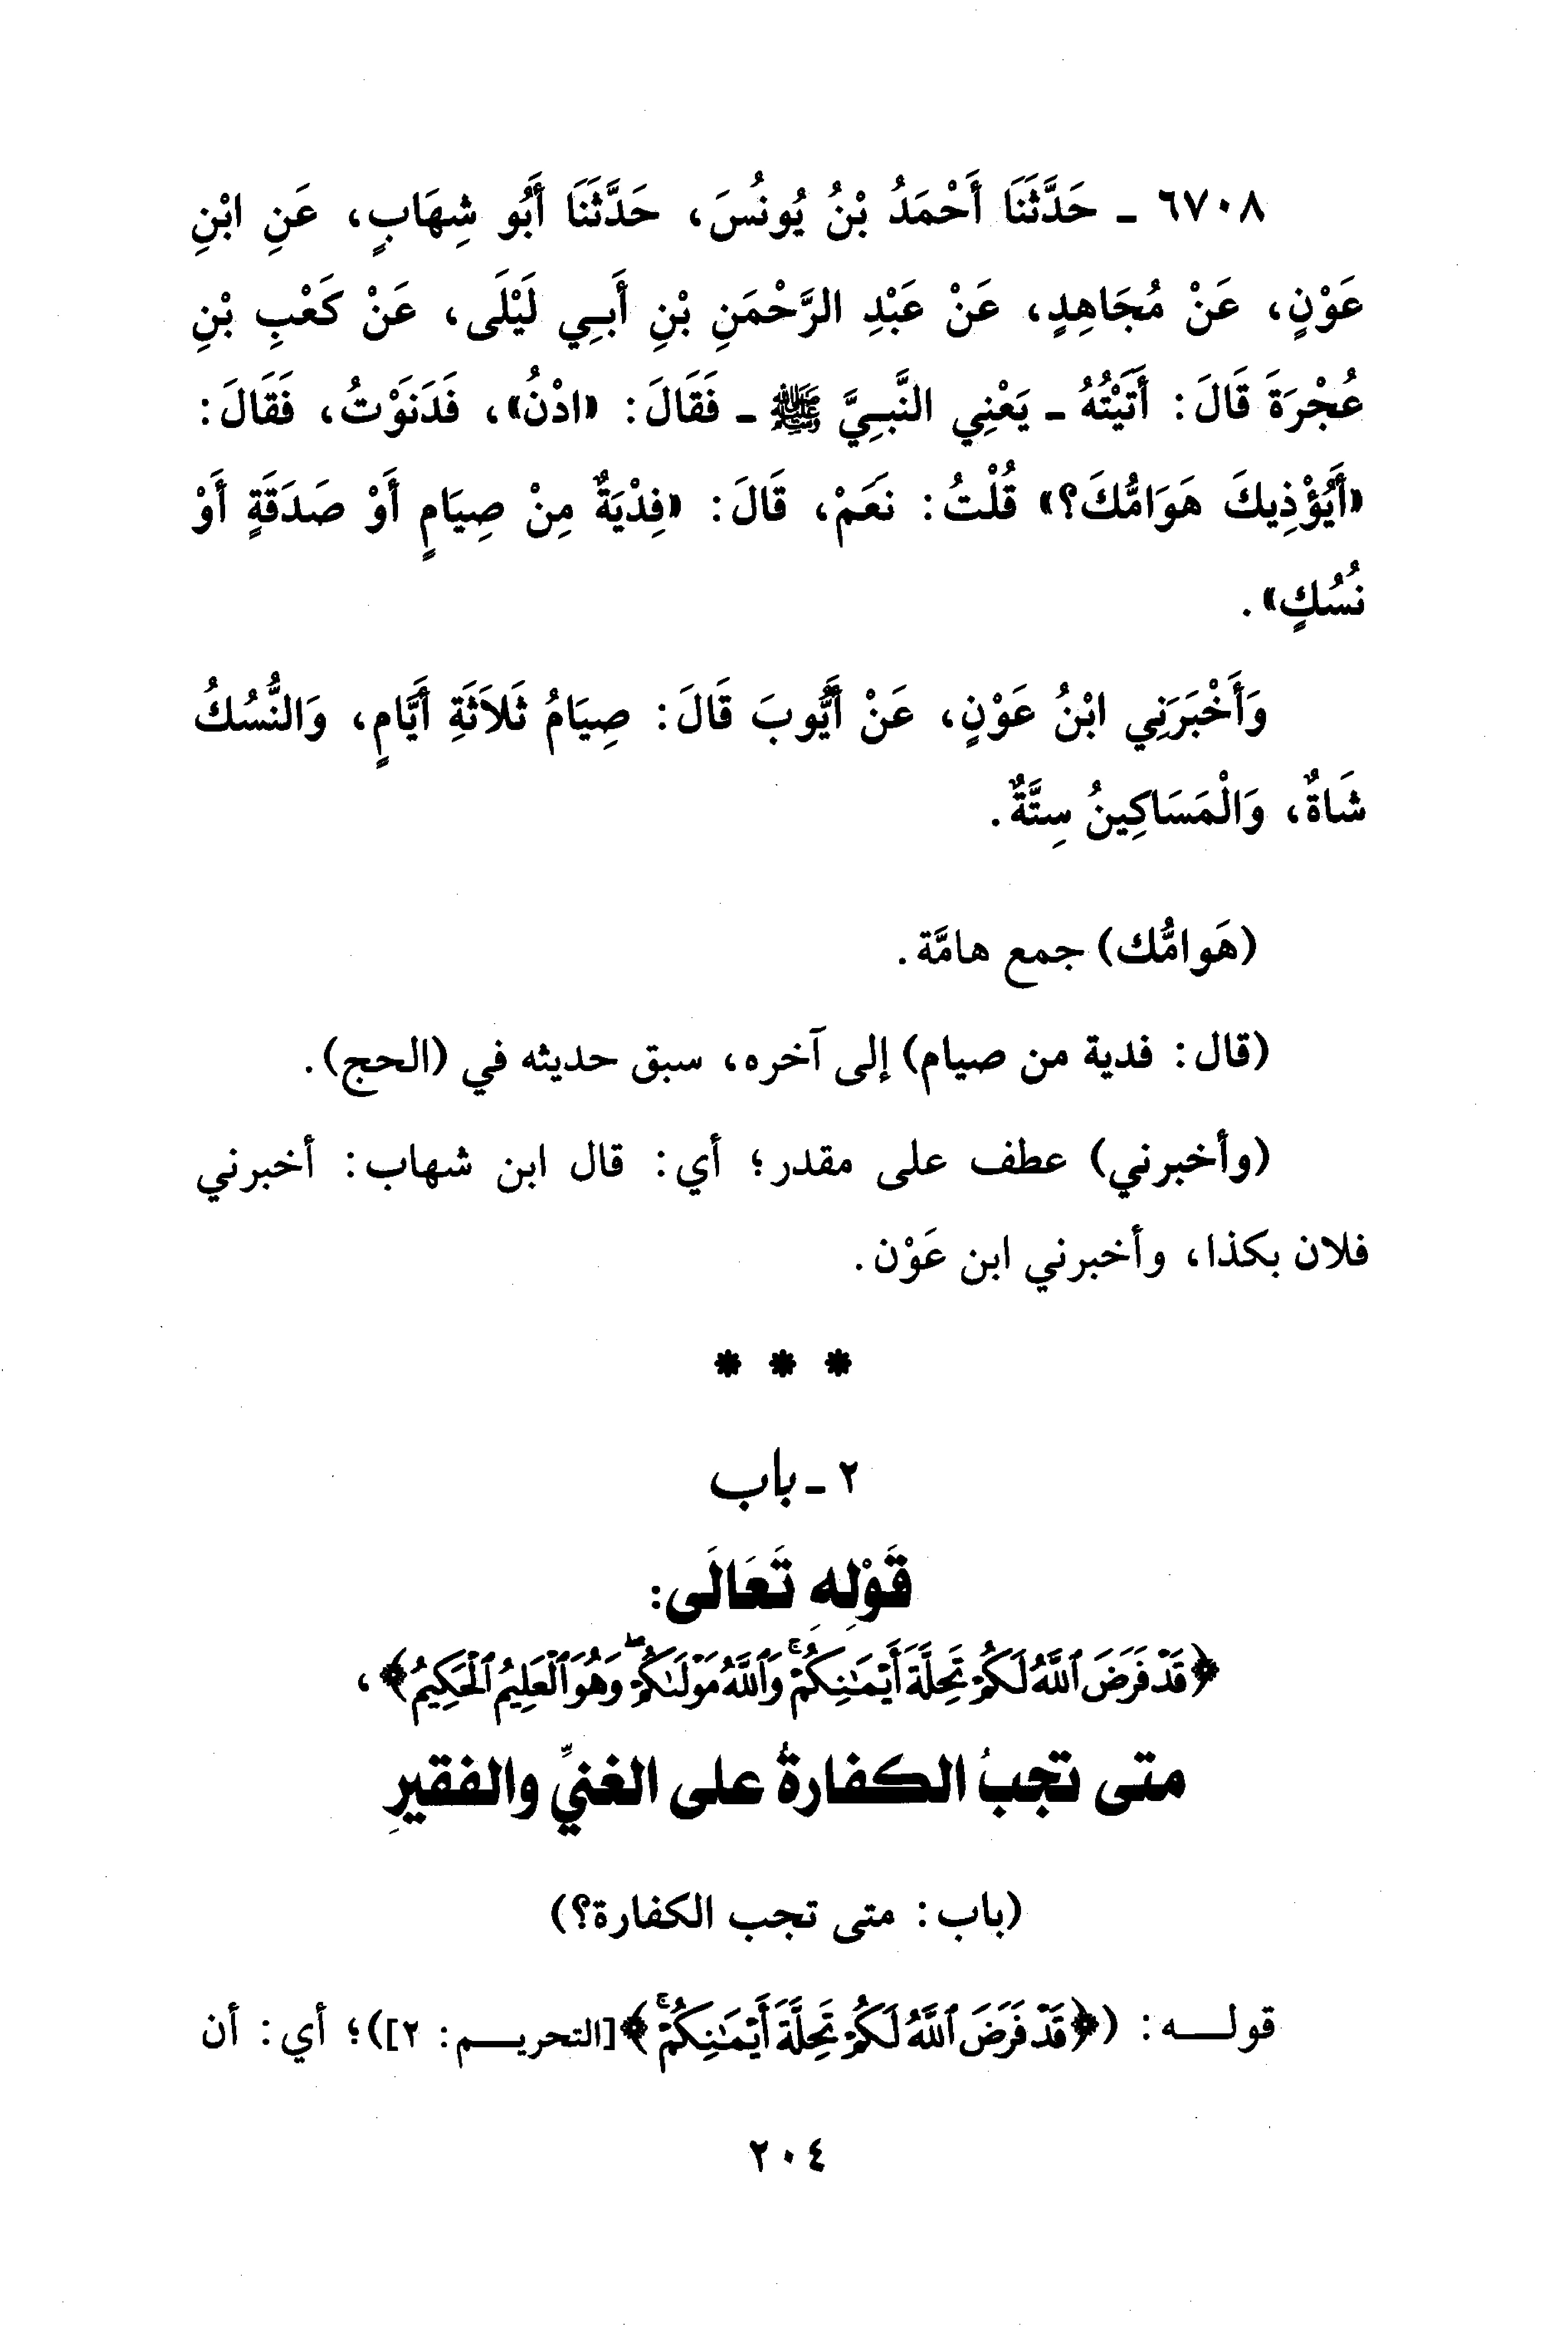 ٦٧٠٨ ـ حَدَّثَنَا أَحْمَدُ بْنُ يُونُسَ، حَدَّثَنَا أَبُو شِهَابٍ، عَنِ ابْنِ
عَوْنٍ، عَنْ مُجَاهِدٍ، عَنْ عَبْدِ الرَّحْمَنِ بْنِ أَبِي لَيْلَى، عَنْ كَعْبِ بْنِ
عُجْرَةَ قَالَ: أَتَيْتُهُ ـ يَعْنِي النَّبِيَّ ﷺ ـ فَقَالَ: «ادْنُ»، فَدَنَوْتُ، فَقَالَ:
«أَيُؤْذِيكَ هَوَامُّكَ؟» قُلْتُ: نَعَمْ، قَالَ: «فِدْيَةٌ مِنْ صِيَامٍ أَوْ صَدَقَةٍ أَوْ
نُسُكٍ».
وَأَخْبَرَنِي ابْنُ عَوْنٍ، عَنْ أَيُّوبَ قَالَ: صِيَامُ ثَلاَثَةِ أَيَّامٍ، وَالنُّسُكُ
شَاةٌ، وَالْمَسَاكِينُ سِتَّةٌ.
(هَوامُّك) جمع هامَّة.
(قال: فدية من صيام) إلى آخره، سبق حديثه في (الحج).
(وأخبرني) عطف على مقدر؛ أي: قال ابن شهاب: أخبرني
فلان بكذا، وأخبرني ابن عَوْن.
* * *
٢ ـ باب
قَوْلِهِ تَعَالَى:
﴿قَدْ فَرَضَ ٱللَّهُ لَكُمْ تَحِلَّةَ أَيْمَٰنِكُمْ ۚ وَٱللَّهُ مَوْلَىٰكُمْ ۖ وَهُوَ ٱلْعَلِيمُ ٱلْحَكِيمُ﴾،
متى تجبُ الكفارةُ على الغنيِّ والفقيرِ
(باب: متى تجب الكفارة؟)
قولـــه: (﴿قَدْ فَرَضَ ٱللَّهُ لَكُمْ تَحِلَّةَ أَيْمَٰنِكُمْ ۚ﴾[التحريـــم: ٢])؛ أي: أن
٢٠٤